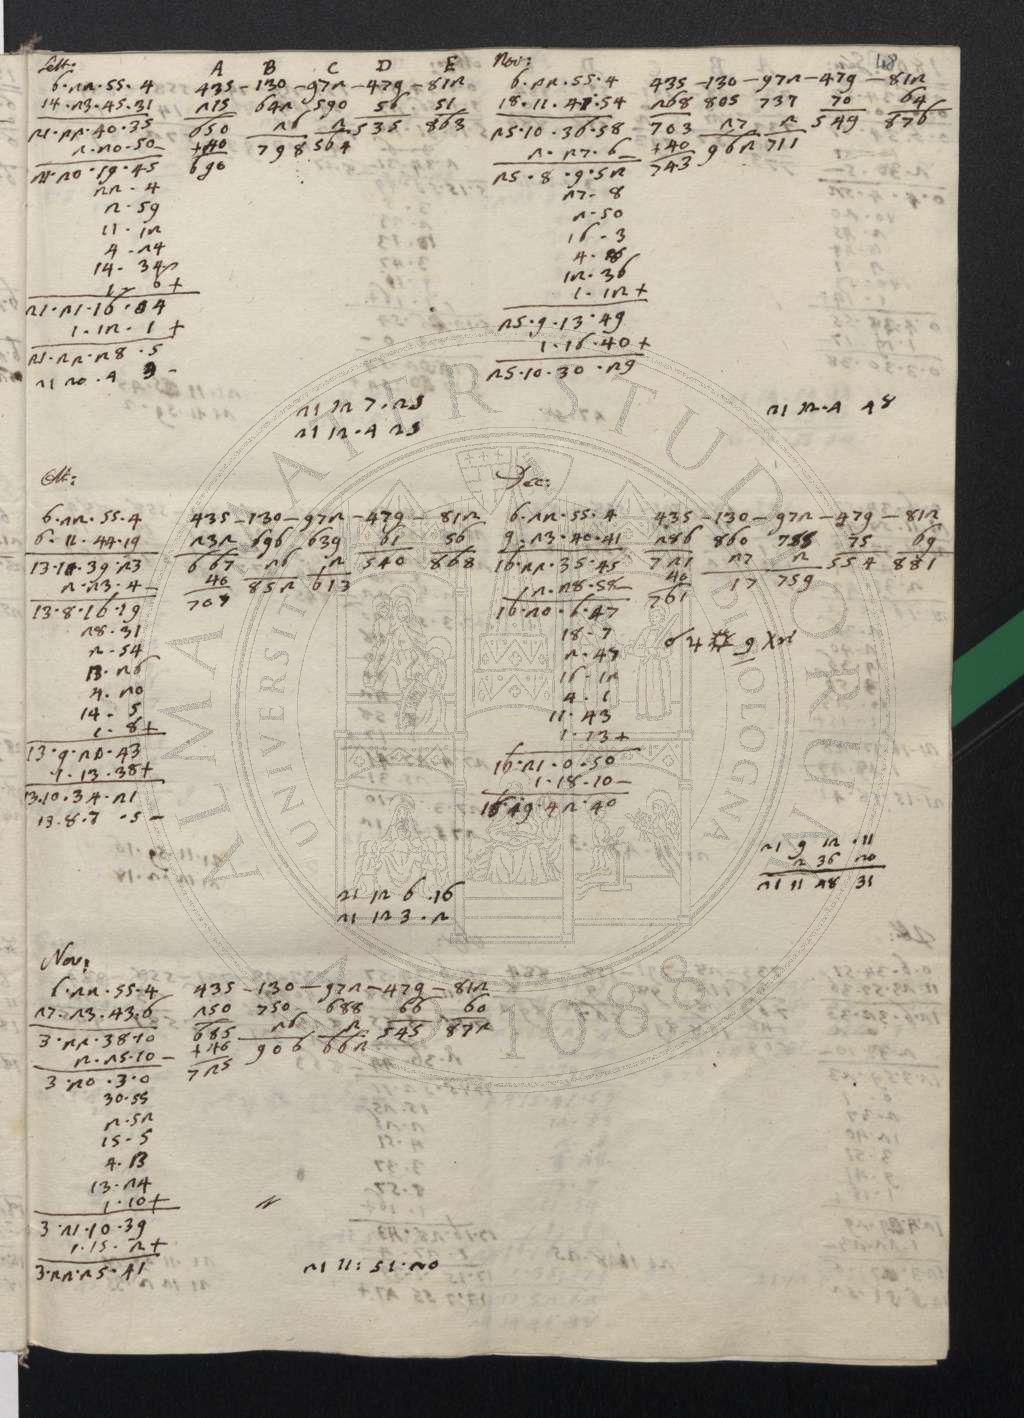 Sett:
A B C D E
6.22.55.4 435-130-972-479-812
14.23.45.31 215 642 590 56 51
21.22.40.35 650 26 2 535 863
2.20.50- +40 798 564
21.20.19.45 690
22.4
2.59
11.12
4.24
14.34
1.6+
21.21.16.04
1.12.1+
21.22.28.5
21 20.4 3-
21 12 7.25
21 12.4 25
Nov: 48
6.22.55.4 435-130-972-479-812
18.11.41.54 268 805 737 70 64
25.10.36.58 703 27 2 549 876
2.27.6- +40 962 711
25.8.9.52 743
27.8
2.50
16.3
4.8
12.36
1.12+
25.9.13.49
1.16.40+
25.10.30.29
21 12.4 48
Ott:
6.22.55.4 435-130-972-479-812
6.11.44.19 232 696 639 61 56
13.10.39.23 667 26 2 540 868
2.23.4- 40 852 613
13.8.16.19 707
28.31
2.54
13.26
4.20
14.5
1.8+
13.9.20.43
1.13.38+
13.10.34.21
13.8.7.5-
21 12 6.16
21 12 3.2
Dec:
6.22.55.4 435-130-972-479-812
9.23.40.41 286 860 788 75 69
16.22.35.45 721 27 2 554 881
12.28.58- 40 17 759
16.20.6.47 761
18.7
2.47
16.12
4.1
11.43
1.13+
16.21.0.50
1.18.10-
16.19.42.40
21 9 12.11
2 36 20
21 11 48 31
Nov:
6.22.55.4 435-130-972-479-812
27.23.43.6 250 750 688 66 60
3.22.38.10 685 26 2 545 872
2.25.10- +40 906 662
3.20.3.0 725
30.55
2.52
15.5
4.13
13.24
1.10+
3.21.10.39
1.15.2+
3.22.25.41
21 11:51.20
ALMA MATER STUDIORUM
UNIVERSITÀ DI BOLOGNA
A.D. 1088